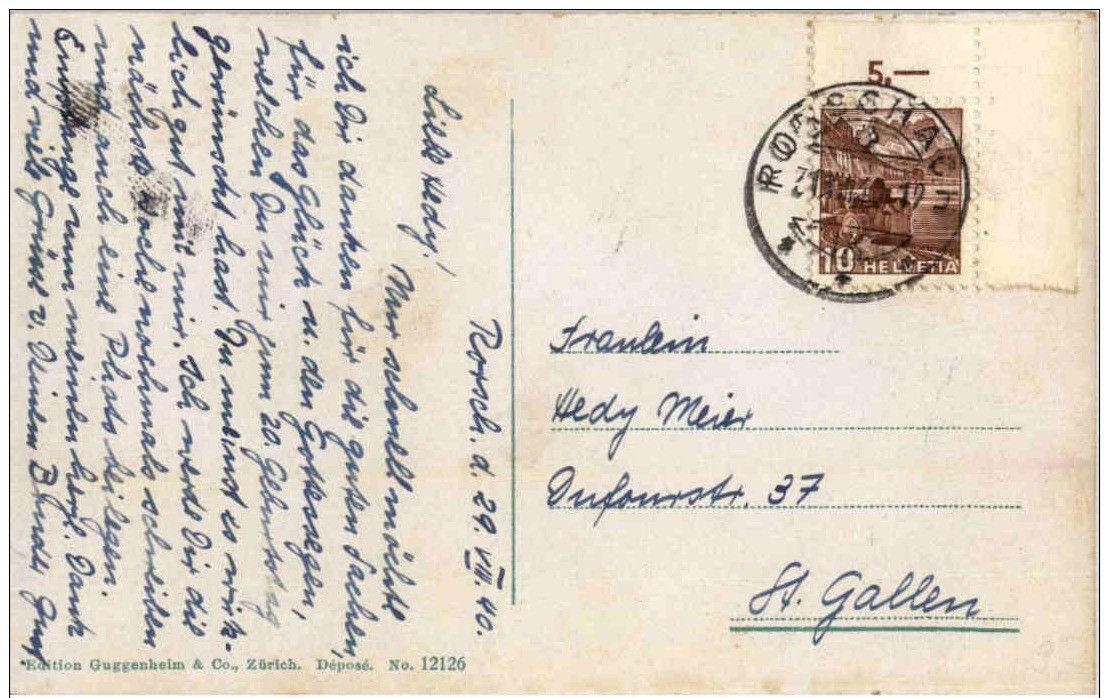 Rorsch. d. 29. VIII. 40.
Liebe Hedy!
Nur schnell möchte
ich Dir danken für die guten Sachen,
für das Glück u. den Gottessegen,
welchen Du mir zum 20. Geburtstag
gewünscht hast. Du meinst es wirk-
lich gut mit mir. Ich werde Dir die
nächste Woche nochmals schreiben
und auch eine Photo beilegen.
Empfange nun meinen herzl. Dank
und viele Grüsse v. Deinem
Edition Guggenheim & Co., Zürich. Déposé. No. 12126
5.—
RORSCHACH
10 HELVETIA
Fräulein
Hedy Meier
Dufourstr. 37
St. Gallen